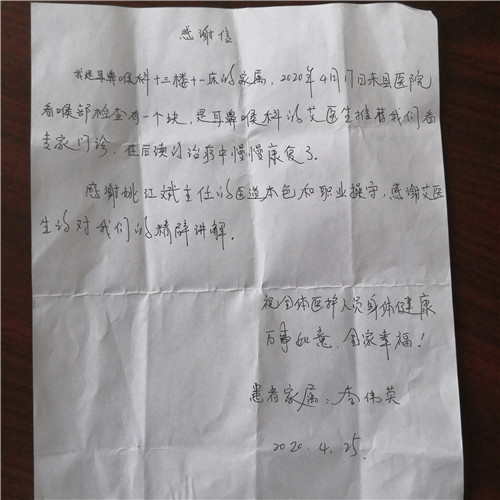 感谢信
我是耳鼻喉科十三楼十一床的家属，2020年4月17日来县医院
看喉部检查有一个块，是耳鼻喉科的艾医生推荐我们看
专家门诊，在后续的治疗中慢慢康复了。
感谢姚江斌主任的医道本色和职业操守，感谢艾医
生的对我们的精辟讲解。
祝全体医护人员身体健康
万事如意、全家幸福！
患者家属：李伟英
2020.4.25.